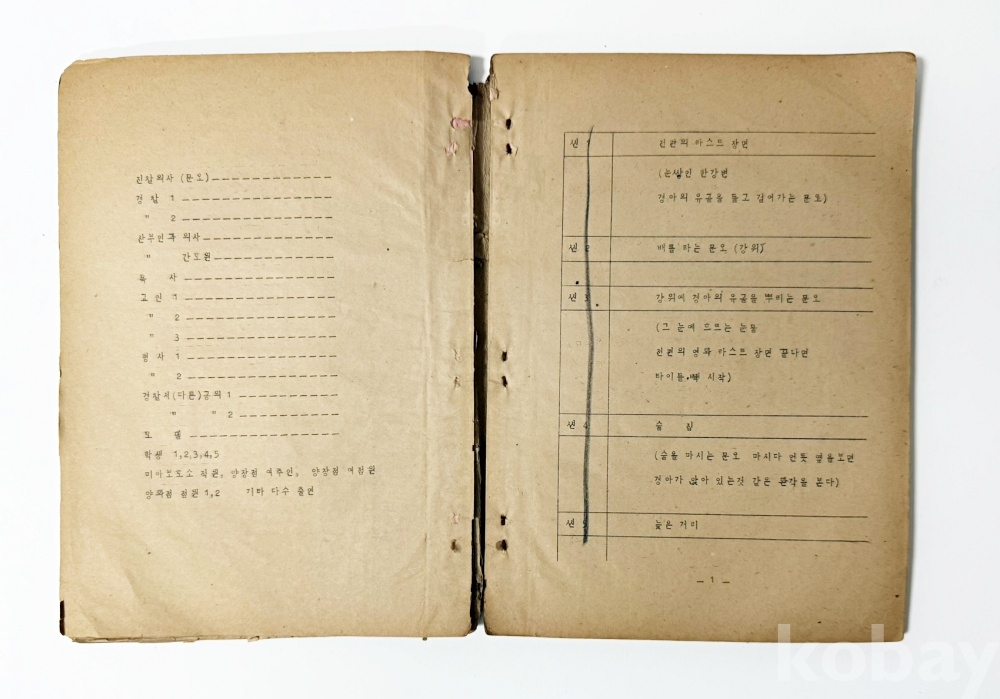 경찰의사 (문오)
경찰 1
" 2
산부인과 의사
" 간호원
목 사
고인 1
" 2
" 3
형사 1
" 2
경찰서(다른)공의 1
" " 2
모 델
학생 1,2,3,4,5
미아보호소 직원, 양장점 여주인, 양장점 여점원
양화점 점원 1,2 기타 다수 출연
씬 1 전편의 라스트 장면
(눈쌓인 한강변
경아의 유골을 들고 걸어가는 문오)
씬 2 배를 타는 문오 (강위)
씬 3 강위에 경아의 유골을 뿌리는 문오
(그 눈에 흐르는 눈물
전편의 영화 라스트 장면 끝나면
타이틀 시작)
씬 4 술 집
(술을 마시는 문오 마시다 언듯 옆을보면
경아가 앉아 있는것 같은 환각을 본다)
씬 5 늦은 거리
— 1 —
kobay